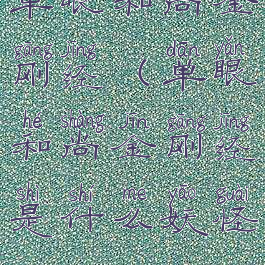 单眼和尚金
gāng jīng dān yǎn
刚经（单眼
hé shàng jīn gāng jīng
和尚金刚经
shì shí me yāo guài
是什么妖怪